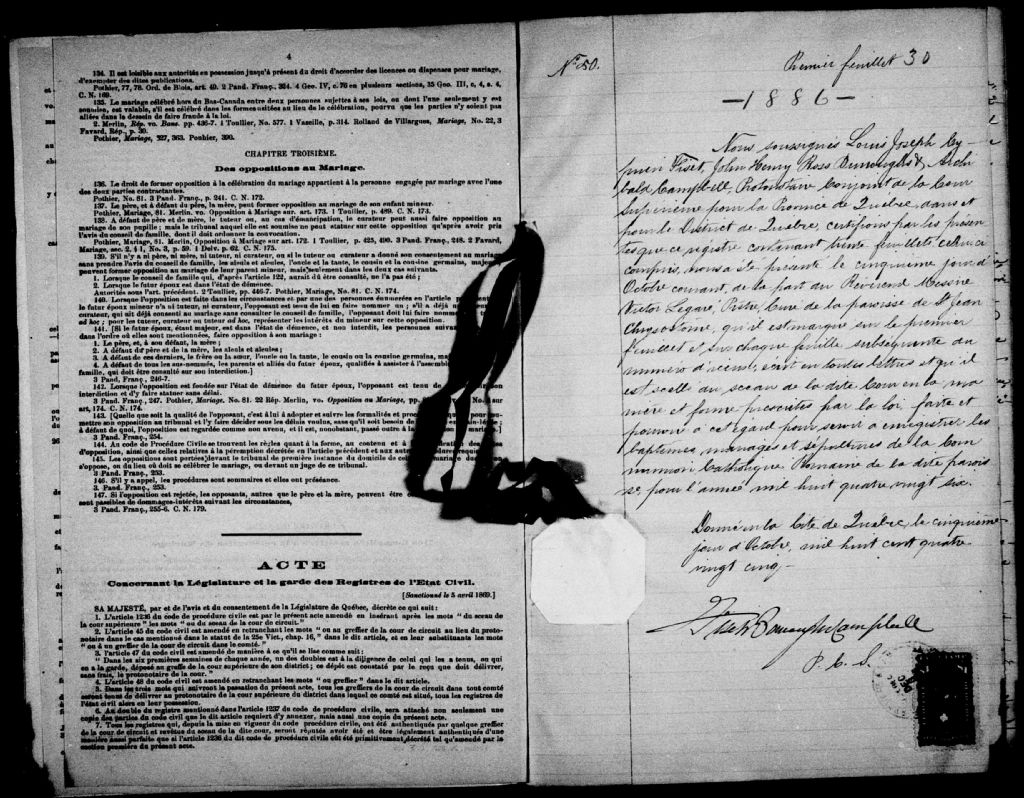 4
134. Il est loisible aux autorités en possession jusqu'à présent du droit d'accorder les licences ou dispenses pour mariage,
d'exempter des dites publications.
Pothier, 77, 78. Ord. de Blois, art. 40. 2 Pand. Franç., 364. 4 Geo. IV, c. 76 en plusieurs sections, 35 Geo. III, c. 4, s. 4,
C. N. 169.
135. Le mariage célébré hors du Bas-Canada entre deux personnes sujettes à ses lois, ou dont l'une seulement y est
soumise, est valable, s'il est célébré dans les formes usitées au lieu de la célébration, pourvu que les parties n'y soient pas
allées dans le dessein de faire fraude à la loi.
2. Merlin, Rép. vo. Bans. pp. 436-7. 1 Toullier, No. 577. 1 Vazeille, p. 314. Rolland de Villargues, Mariage, No. 22, 3
Favard, Rép., p. 30.
Pothier, Mariage, 327, 363. Pothier, 390.
CHAPITRE TROISIÈME.
Des oppositions au Mariage.
136. Le droit de former opposition à la célébration du mariage appartient à la personne engagée par mariage avec l'une
des deux parties contractantes.
Pothier, No. 81. 3 Pand. Franç., p. 241. C. N. 172.
137. Le père, et à défaut du père, la mère, peut former opposition au mariage de son enfant mineur.
Pothier, Mariage, 81. Merlin, vo. Opposition à Mariage sur art. 173. 1 Toullier, p. 489. C. N. 173.
138. A défaut de père et de mère, le tuteur ou, au cas d'émancipation, le curateur peut aussi faire opposition au
mariage de son pupille ; mais le tribunal auquel elle est soumise ne peut statuer sur cette opposition qu'après avoir pris
l'avis du conseil de famille, dont il doit ordonner la convocation.
Pothier, Mariage, 81. Merlin, Opposition à Mariage sur art. 172. 1 Toullier, p. 425, 490. 3 Pand. Franç., 248. 2 Favard,
Mariage, sec. 2, § 1, No. 3, p. 59. 1 Delv. p. 62. C. N. 175.
139. S'il n'y a ni père, ni mère, ni tuteur, ni curateur, ou si le tuteur ou curateur a donné son consentement au mariage
sans prendre l'avis du conseil de famille, les aïeuls et aïeules, l'oncle et la tante, le cousin et la cousine germains, majeurs
peuvent former opposition au mariage de leur parent mineur, mais seulement dans les deux cas suivants.
1. Lorsque le conseil de famille qui, d'après l'article 122, aurait dû être consulté, ne l'a pas été ;
2. Lorsque le futur époux est dans l'état de démence.
Autorités sous l'art. précédent. 2 Toullier, pp. 446-7. Pothier, Mariage, No. 81. C. N. 174.
140. Lorsque l'opposition est faite dans les circonstances et par une des personnes énumérées en l'article
le futur époux mineur n'a ni tuteur, ni curateur, l'opposant est tenu de lui en faire nommer un ; s'il a déjà
curateur, qui ait déjà consenti au mariage sans consulter le conseil de famille, l'opposant doit lui faire
ad hoc ; pour les tuteur, curateur ou tuteur ad hoc, représenter les intérêts du mineur sur cette opposition.
141. [Si le futur époux, étant majeur, est dans l'état de démence, et non interdit, les personnes
dans l'ordre où elles sont mentionnées, faire opposition à son mariage :
1. Le père, et, à son défaut, la mère ;
2. A défaut de père et de mère, les aïeuls et aïeules ;
3. A défaut de ces derniers, le frère ou la sœur, l'oncle ou la tante, le cousin ou la cousine germains,
4. A défaut de tous les sus-nommés, les parents et alliés du futur époux, qualifiés à assister à
famille, qui doit être consulté sur son interdiction.]
3 Pand. Franç., 246-7.
142. Lorsque l'opposition est fondée sur l'état de démence du futur époux, l'opposant est tenu de
interdiction et d'y faire statuer sans délai.
3 Pand. Franç., 247. Pothier, Mariage, No. 81. 22 Rép. Merlin, vo. Opposition au Mariage, pp. No. sur
art, 174. C. N. 174.
143. [Quelle que soit la qualité de l'opposant, c'est à lui à adopter et suivre les formalités et
mettre son opposition au tribunal et l'y faire décider sous les délais voulus, sans qu'il soit besoin de
à défaut de quoi, l'opposition est regardée comme non avenue, et il est, nonobstant, passé outre à la mariage ;]
3 Pand. Franç., 254.
144. Au code de Procédure Civile se trouvent les règles quant à la forme, au contenu et à
d'opposition, ainsi que celles relatives à la péremption décrétée en l'article précédent et aux
145. Les oppositions sont portées devant le tribunal de première instance du domicile de
s'oppose, ou du lieu où doit se célébrer le mariage, ou devant un juge de ce tribunal.
3 Pand. Franç., 253.
146. S'il y a appel, les procédures sont sommaires et elles ont préséance.
3. Pand. Franç., 253.
147. Si l'opposition est rejetée, les opposants, autres que le père et la mère, peuvent être
sont passibles de dommages-intérêts suivant les circonstances,
3 Pand. Franç., 255-6. C. N. 179.
ACTE
Concernant la Législature et la garde des Registres de l'Etat Civil.
[Sanctionné le 5 avril 1869.]
SA MAJESTÉ, par et de l'avis et du consentement de la Législature de Québec, décrète ce qui suit :
1. L'article 1236 du code de procédure civile est par le présent acte amendé en insérant après les mots " du sceau de la
cour supérieure " les mots " ou du sceau de la cour de circuit."
2. L'article 45 du code civil est amendé en retranchant les mots " ou au greffier de la cour de circuit au lieu du proto-
notaire dans le cas mentionné dans le statut de la 25e Vict., chap. 16, " dans le dit article, et en leur substituant les mots
" ou à un greffier de la cour de circuit dans le comté."
3. l'article 47 du code civil est amendé de manière à ce qu'il se lise comme suit :
" Dans les six premières semaines de chaque année, un des doubles est à la diligence de celui qui les a tenus, ou qui
en a la garde, déposé au greffe de la cour supérieure de son district ; ce dépôt est constaté par le reçu que doit délivrer,
sans frais, le protonotaire de la cour. "
4. L'article 48 du code civil est amendé en retranchant les mots " ou greffier " dans le dit article.
5. Dans les trois mois qui suivront la passation du présent acte, tous les greffiers de la cour de circuit dans tout comté
seront tenus de délivrer au protonotaire de la cour supérieure du district dans lequel ce comté est situé, tous les registres de
l'état civil alors en leur possession.
6. Au double du registre mentionné dans l'article 1237 du code de procédure civile, sera attaché non seulement une
copie des parties du code civil que le dit article requiert d'y annexer, mais aussi une copie du présent acte.
7. Tous les registres qui, depuis la mise en vigueur du code procédure civile, ont été authentiqués par quelque greffier
de la cour de circuit et revêtus du sceau de la dite cour, seront réputés avoir été et être légalement authentiqués d'une
manière aussi parfaite que si l'article 1236 du dit code de procédure civile eût été primitivement décrété tel qu'amendé par la
section première du présent acte.
No. 50.
Premier feuillet 30
—1886—
Nous soussignés Louis Joseph Cy-
prien Fiset, John Henry Ross Burroughs & Archi-
bald Campbell, Protonotaire Conjoint de la Cour
Supérieure pour la Province de Québec, dans et
pour le District de Québec, certifions par les présen-
tes que ce régistre contenant trente feuillets celui-ci
compris, nous a été présenté le cinquième jour d'
Octobre courant, de la part du Révérend Messire
Victor Légaré, Prêtre, Curé de la paroisse de St Jean
Chrysostome, qu'il est marqué sur le premier
feuillet et sur chaque feuillet subséquente du
numéro d'icelui, écrit en toutes lettres et qu'il
est scellé du sceau de la dite Cour en la ma-
nière et forme prescrites par la loi, faite et
pourvu à cet égard pour servir à enregistrer les
baptêmes, mariages et sépultures de la Com-
munion Catholique Romaine de la dite parois-
se, pour l'année mil huit quatre vingt six.
Donné en la Cité de Québec, le cinquième
jour d'Octobre, mil huit cent quatre
vingt cinq—
Fiset Burroughs Campbell
P. C. S.